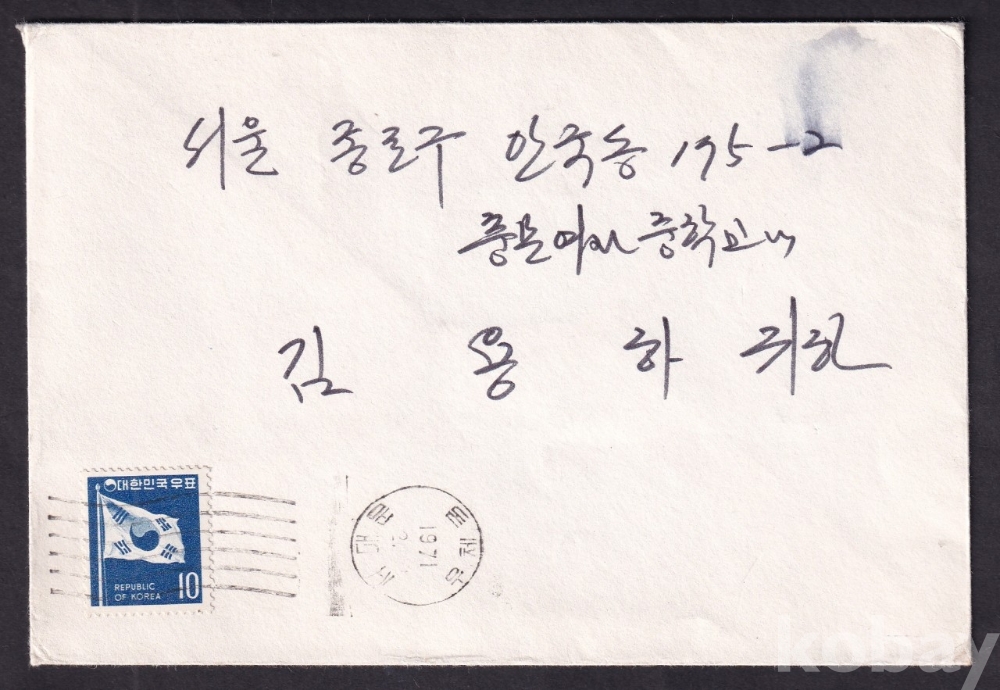 서울 종로구 안국동 175-2
풍문여자중학교내
김 용 하 귀하
대한민국우표
REPUBLIC
OF KOREA
10
서대문
1971
우체국
kobay